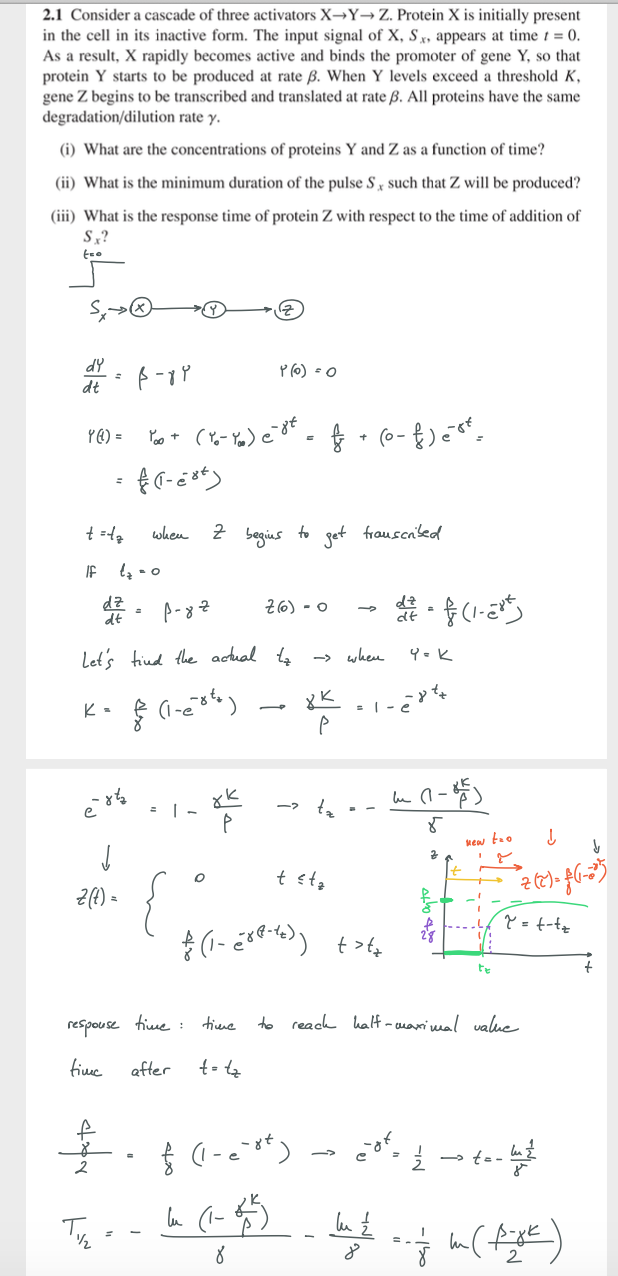 2.1 Consider a cascade of three activators X→Y→ Z. Protein X is initially present
in the cell in its inactive form. The input signal of X, Sₓ, appears at time t = 0.
As a result, X rapidly becomes active and binds the promoter of gene Y, so that
protein Y starts to be produced at rate β. When Y levels exceed a threshold K,
gene Z begins to be transcribed and translated at rate β. All proteins have the same
degradation/dilution rate γ.
(i) What are the concentrations of proteins Y and Z as a function of time?
(ii) What is the minimum duration of the pulse Sₓ such that Z will be produced?
(iii) What is the response time of protein Z with respect to the time of addition of
Sₓ?
t=0
Sₓ → X → Y → Z
dY/dt = β - γY   Y(0) = 0
Y(t) = Y∞ + (Y₀ - Y∞) e^(-γt) = β/γ + (0 - β/γ) e^(-γt) =
= β/γ (1 - e^(-γt))
t = t_z when Z begins to get transcribed
IF t_z = 0
dZ/dt = β - γZ   Z(0) = 0 → dZ/dt = β/γ (1 - e^(-γt))
Let's find the actual t_z → when Y = K
K = β/γ (1 - e^(-γt_z)) → γK/β = 1 - e^(-γt_z)
e^(-γt_z) = 1 - γK/β → t_z = - ln(1 - γK/β)/γ
↓
Z(t) = { 0   t ≤ t_z
β/γ (1 - e^(-γ(t-t_z)))   t > t_z
new t=0
↓ ↓
z
t
τ
Z(τ) = β/γ (1 - e^(-γτ))
β/γ
β/2γ
τ = t - t_z
t_z
t
response time : time to reach half-maximal value
time after t = t_z
(β/γ)/2 = β/γ (1 - e^(-γt)) → e^(-γt) = 1/2 → t = - ln 1/2 / γ
T_1/2 = - ln(1 - γK/β)/γ - ln 1/2 / γ = - 1/γ ln((β-γK)/2)